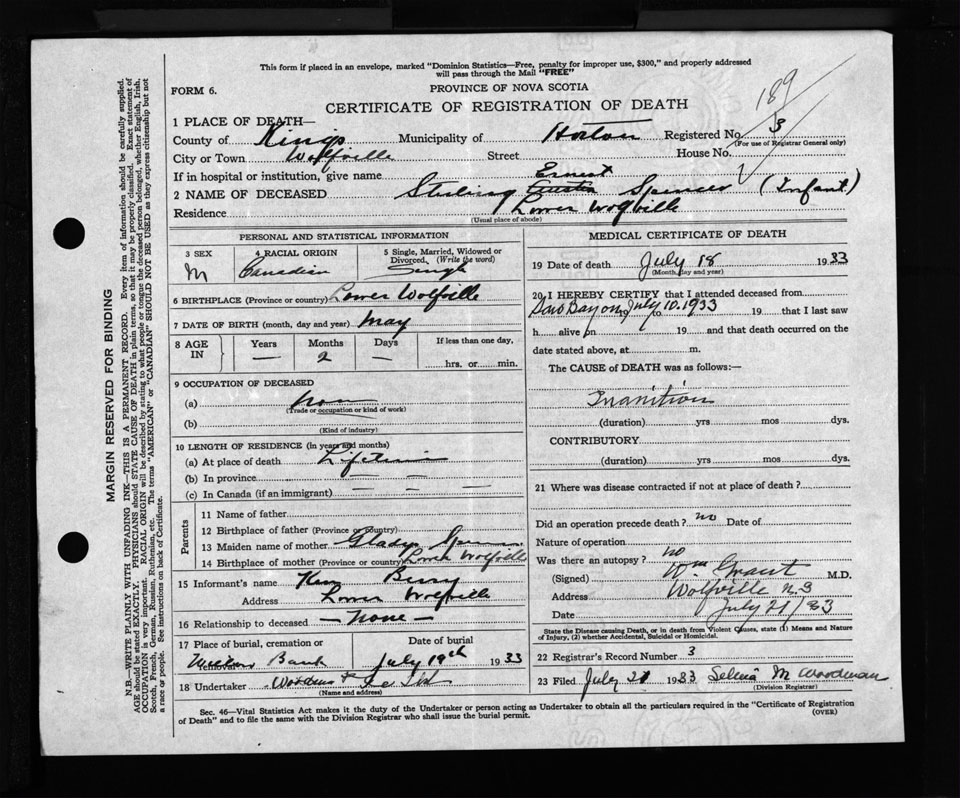 This form if placed in an envelope, marked "Dominion Statistics—Free, penalty for improper use, $300," and properly addressed
will pass through the Mail "FREE"
189
FORM 6.
PROVINCE OF NOVA SCOTIA
CERTIFICATE OF REGISTRATION OF DEATH
1 PLACE OF DEATH—
County of Kings Municipality of Horton Registered No. 3
(For use of Registrar General only)
City or Town Wolfville Street House No.
If in hospital or institution, give name
Ernest
2 NAME OF DECEASED Sterling Spencer (Infant)
Residence Lower Wolfville
(Usual place of abode)
PERSONAL AND STATISTICAL INFORMATION
3 SEX 4 RACIAL ORIGIN 5 Single, Married, Widowed or Divorced, (Write the word)
M Canadian Single
6 BIRTHPLACE (Province or country) Lower Wolfville
7 DATE OF BIRTH (month, day and year) May
8 AGE IN Years Months Days If less than one day,
— 2 — hrs. or min.
9 OCCUPATION OF DECEASED
(a) None
(Trade or occupation or kind of work)
(b)
(Kind of industry)
10 LENGTH OF RESIDENCE (in years and months)
(a) At place of death Lifetime
(b) In province — — —
(c) In Canada (if an immigrant) — — —
Parents
11 Name of father
12 Birthplace of father (Province or country)
13 Maiden name of mother Gladys Spencer
14 Birthplace of mother (Province or country) Lower Wolfville
15 Informant's name
Address Lower Wolfville
16 Relationship to deceased — None —
17 Place of burial, cremation or removal Date of burial
Bank July 19th 1933
18 Undertaker
(Name and address)
MEDICAL CERTIFICATE OF DEATH
19 Date of death July 18 1933
(Month, day and year)
20 I HEREBY CERTIFY that I attended deceased from
Saw on July 10. 1933 to 19 that I last saw
h alive on 19 and that death occurred on
date stated above, at m.
The CAUSE of DEATH was as follows:—
Inanition
(duration) yrs mos dys.
CONTRIBUTORY
(duration) yrs mos dys.
21 Where was disease contracted if not at place of death?
Did an operation precede death? no Date of
Nature of operation
Was there an autopsy? no
(Signed) Wm Grant M.D.
Address Wolfville N.S
Date July 21/33
State the Disease causing Death, or in death from Violent Causes, state (1) Means and Nature
of Injury, (2) whether Accidental, Suicidal or Homicidal.
22 Registrar's Record Number 3
23 Filed July 21 1933 Selina M Woodman
(Division Registrar)
Sec. 46—Vital Statistics Act makes it the duty of the Undertaker or person acting as Undertaker to obtain all the particulars required in the "Certificate of Registration
of Death" and to file the same with the Division Registrar who shall issue the burial permit. (OVER)
MARGIN RESERVED FOR BINDING
N.B.—WRITE PLAINLY WITH UNFADING INK—THIS IS A PERMANENT RECORD. Every item of information should be carefully supplied.
AGE should be stated EXACTLY. PHYSICIANS should STATE CAUSE OF DEATH in plain terms, so that it may be properly classified. Exact statement of
OCCUPATION is very important. RACIAL ORIGIN will be described by stating to what people or tongue the deceased person belonged, whether English, Irish,
Scotch, French, German, Russian, Ruthenian, etc. The terms "AMERICAN" or "CANADIAN" SHOULD NOT BE USED as they express citizenship but not
a race or people. See instructions on back of Certificate.